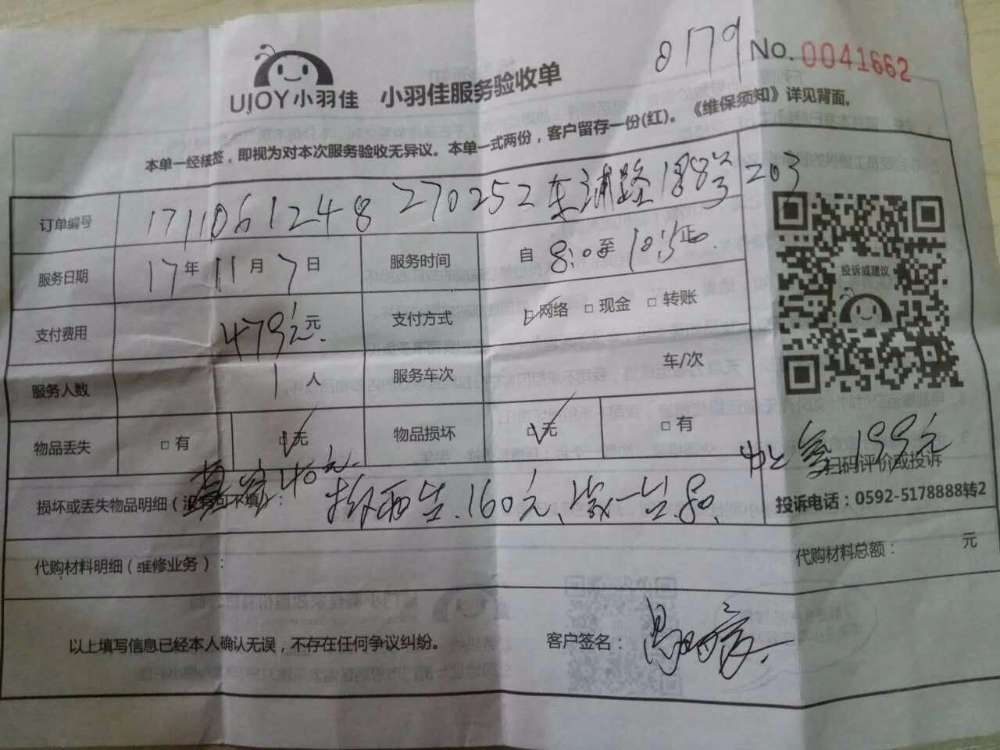 UJOY小羽佳 小羽佳服务验收单 8179 No. 0041662
本单一经核签，即视为对本次服务验收无异议。本单一式两份，客户留存一份(红)。《维保须知》详见背面。
订单编号 1711061248 270252 东浦路188号 203
服务日期 17年11月7日 服务时间 自8:0至10:
投诉或建议
支付费用 479元 支付方式 网络 现金 转账
服务人数 1人 服务车次 车/次
物品丢失 有 无 物品损坏 无 有
加氟199元
扫码评价或投诉
40元
损坏或丢失物品明细（没有可不填）： 拆两台.160元、装一台80.
投诉电话：0592-5178888转2
代购材料明细（维修业务）： 代购材料总额： 元
以上填写信息已经本人确认无误，不存在任何争议纠纷。 客户签名：